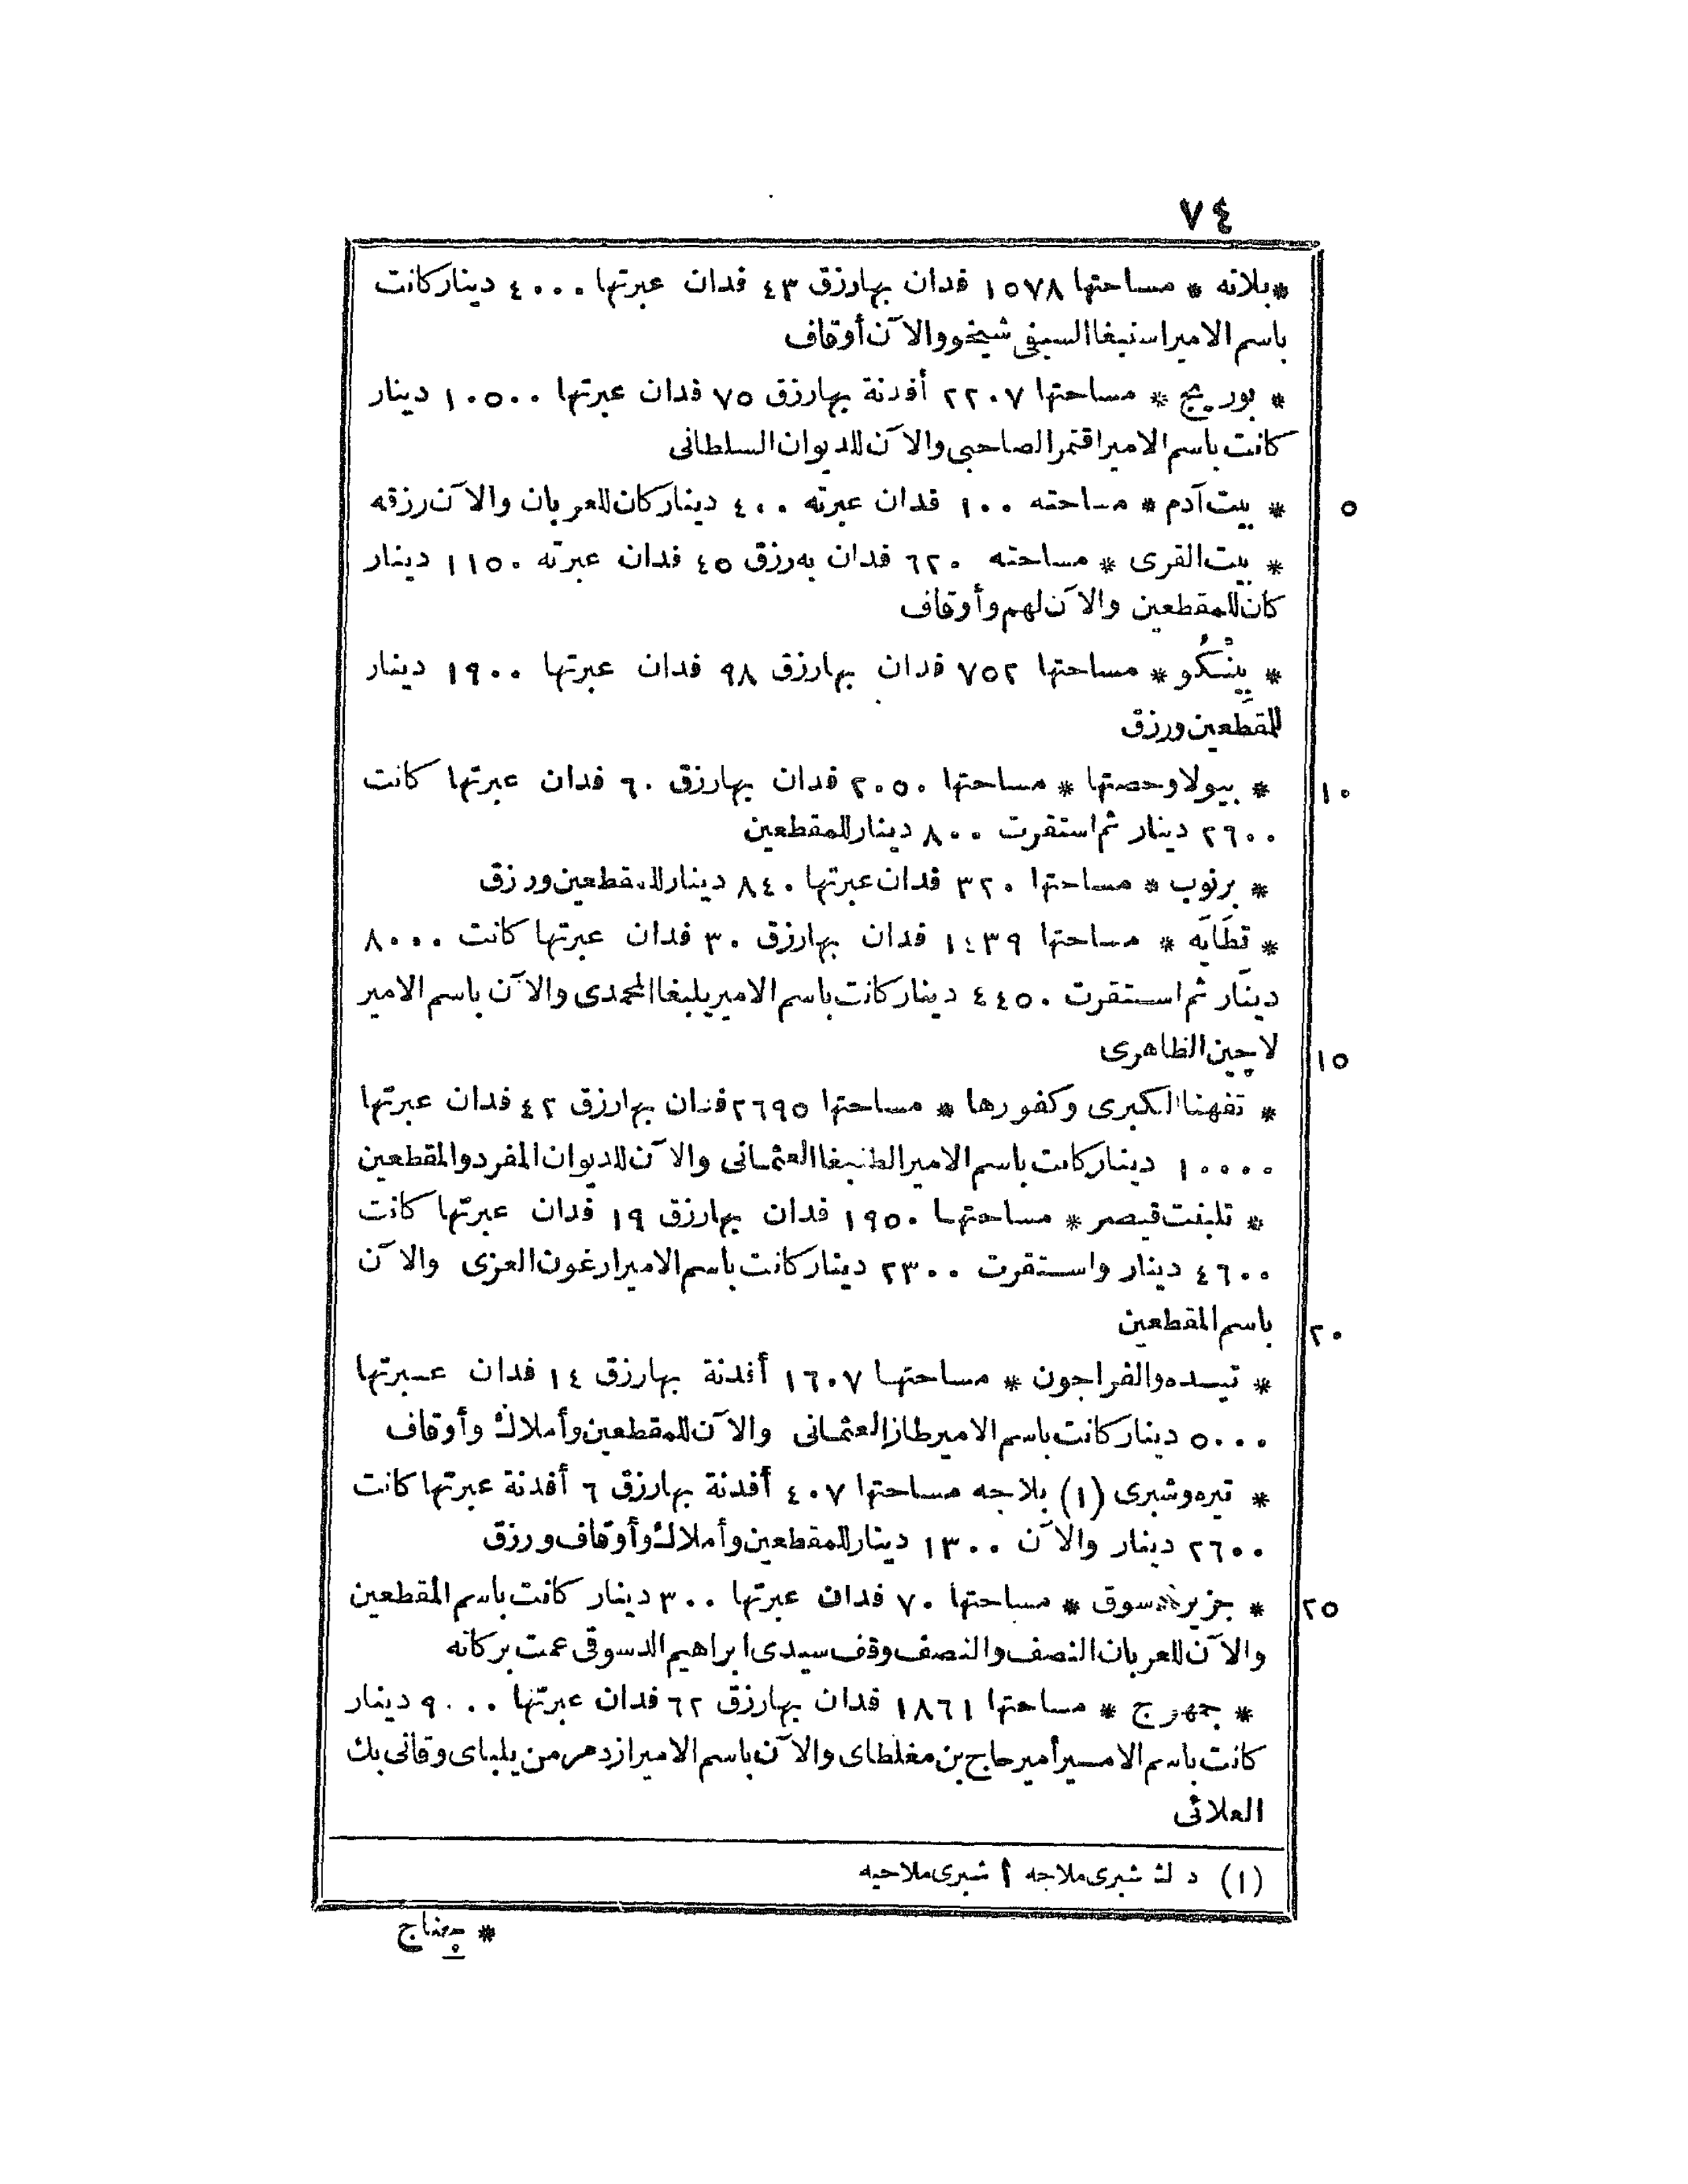 ٧٤
* بلاته * مساحتها ١٥٧٨ فدان بها رزق ٤٣ فدان عبرتها ٤٠٠٠ دينار كانت
باسم الامير اسنبغا السيفى شيخو والآن أوقاف
* بوريج * مساحتها ٢٢٠٧ أفدنة بها رزق ٧٥ فدان عبرتها ١٠٥٠٠ دينار
كانت باسم الامير اقتمر الصاحبى والآن للديوان السلطانى
* بيت آدم * مساحته ١٠٠ فدان عبرته ٤٠٠ دينار كان للعربان والآن رزقه ٥
* بيت القرى * مساحته ٦٢٠ فدان به رزق ٤٥ فدان عبرته ١١٥٠ دينار
كان للمقطعين والآن لهم وأوقاف
* يِنْشُكُو * مساحتها ٧٥٢ فدان بها رزق ٩٨ فدان عبرتها ١٩٠٠ دينار
للمقطعين ورزق
* بيولا وحصتها * مساحتها ٢٠٥٠ فدان بها رزق ٦٠ فدان عبرتها كانت ١٠
٢٩٠٠ دينار ثم استقرت ٨٠٠ دينار للمقطعين
* برنوب * مساحتها ٣٢٠ فدان عبرتها ٨٤٠ دينار للمقطعين ورزق
* قطَايَه * مساحتها ١٤٣٩ فدان بها رزق ٣٠ فدان عبرتها كانت ٨٠٠٠
دينار ثم استقرت ٤٤٥٠ دينار كانت باسم الامير يلبغا المحمدى والآن باسم الامير
لاچين الظاهرى ١٥
* تفهنا الكبرى وكفورها * مساحتها ٢٦٩٥ فدان بها رزق ٤٢ فدان عبرتها
١٠٠٠٠ دينار كانت باسم الامير الطنبغا العثمانى والآن للديوان المفرد والمقطعين
* تلبنت قيصر * مساحتها ١٩٥٠ فدان بها رزق ١٩ فدان عبرتها كانت
٤٦٠٠ دينار واستقرت ٢٣٠٠ دينار كانت باسم الامير ارغون العزى والآن
باسم المقطعين ٢٠
* تيسده والفراجون * مساحتها ١٦٠٧ أفدنة بها رزق ١٤ فدان عبرتها
٥٠٠٠ دينار كانت باسم الامير طاز العثمانى والآن للمقطعين وأملاك وأوقاف
* تيره وشبرى (١) بلاجه مساحتها ٤٠٧ أفدنة بها رزق ٦ أفدنة عبرتها كانت
٢٦٠٠ دينار والآن ١٣٠٠ دينار للمقطعين وأملاك وأوقاف ورزق
* جزيرة دسوق * مساحتها ٧٠ فدان عبرتها ٣٠٠ دينار كانت باسم المقطعين ٢٥
والآن للعربان النصف والنصف وقف سيدى ابراهيم الدسوقى عمت بركاته
* جمهرج * مساحتها ١٨٦١ فدان بها رزق ٦٢ فدان عبرتها ٩٠٠٠ دينار
كانت باسم الامير أمير حاج بن مغلطاى والآن باسم الامير ازدهر من يلباى وقانى بك
العلائى
(١) د ك شبرى ملاجه أ شبرى ملاحيه